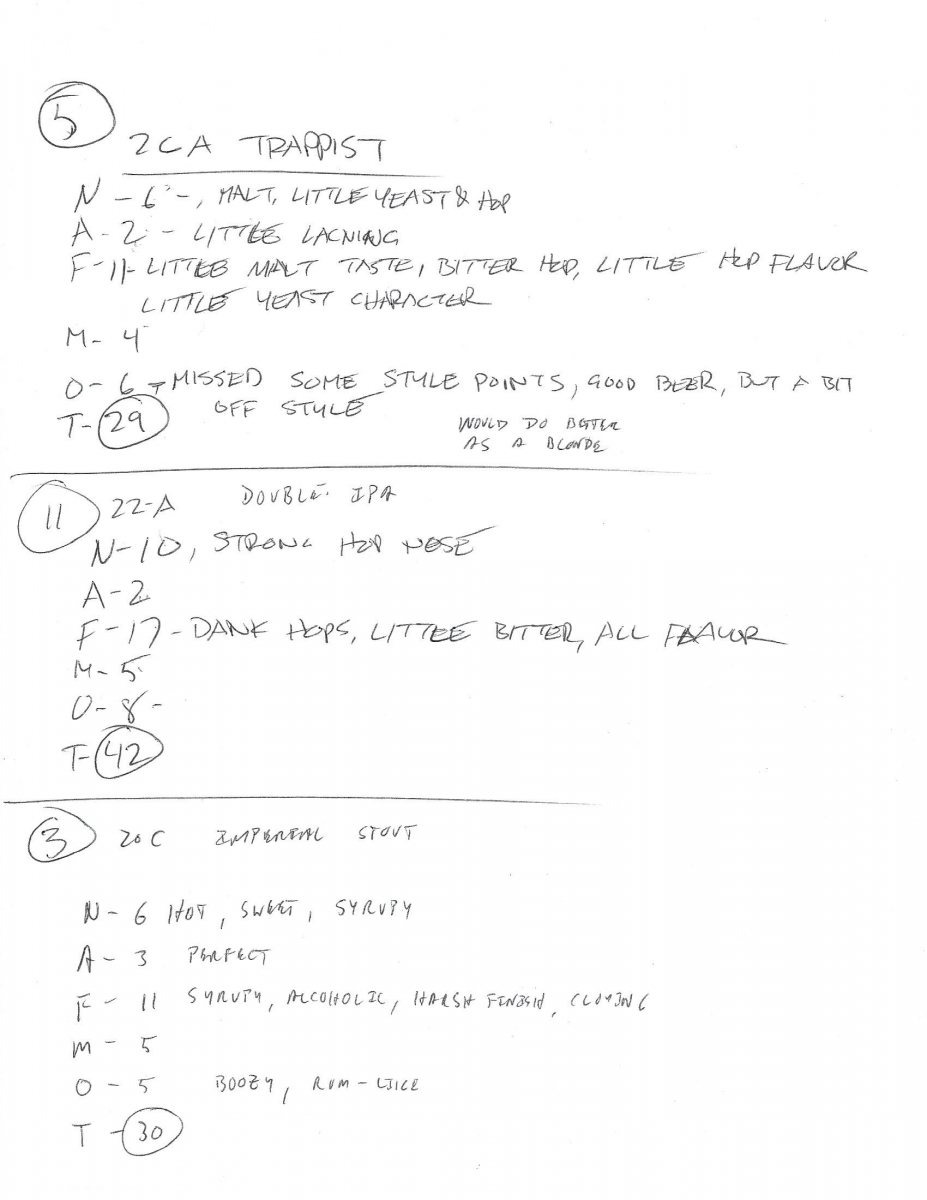 5
2CA TRAPPIST
N - 6 -, MALT, LITTLE YEAST & HOP
A - 2 - LITTLE LACNING
F - 11 - LITTLE MALT TASTE, BITTER HOP, LITTLE HOP FLAVOR
LITTLE YEAST CHARACTER
M - 4
O - 6 - MISSED SOME STYLE POINTS, GOOD BEER, BUT A BIT
OFF STYLE
T - 29
WOULD DO BETTER
AS A BLONDE
11 22-A DOUBLE IPA
N - 10, STRONG HOP NOSE
A - 2
F - 17 - DANK HOPS, LITTLE BITTER, ALL FLAVOR
M - 5
O - 8 -
T - 42
3 20C IMPERIAL STOUT
N - 6 HOT, SWEET, SYRUPY
A - 3 PERFECT
F - 11 SYRUPY, ALCOHOLIC, HARSH FINISH, CLOYING
M - 5
O - 5 BOOZY, RUM-LIKE
T - 30